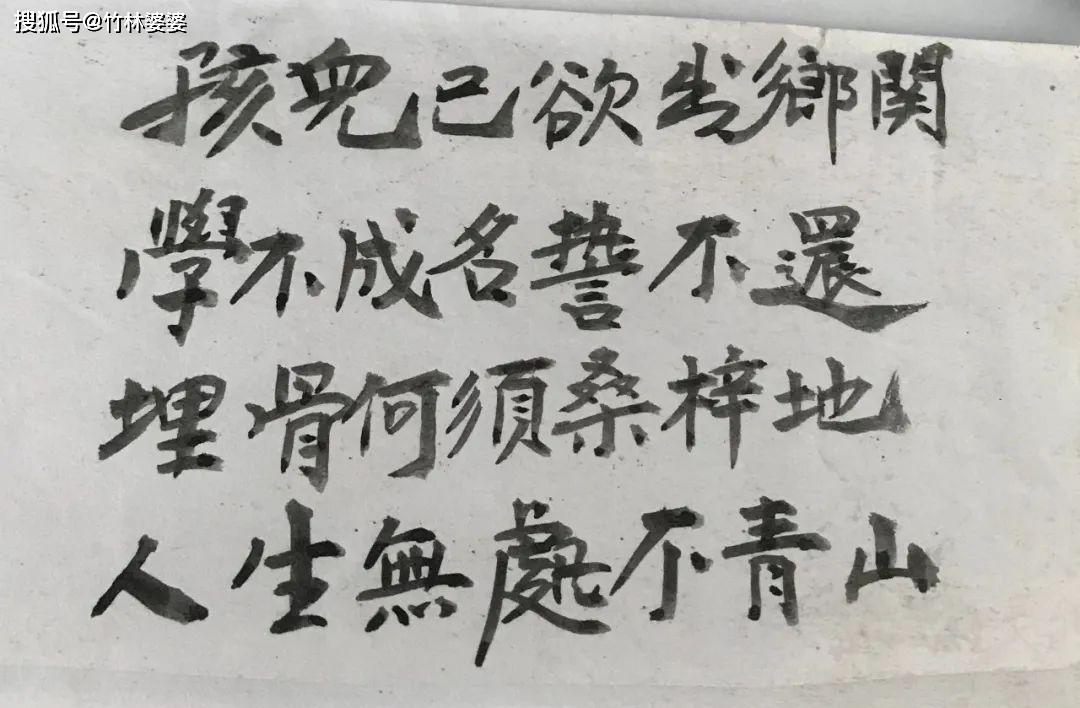 搜狐号@竹林婆婆
孩兒已欲出鄉関
學不成名誓不還
埋骨何須桑梓地
人生無處不青山